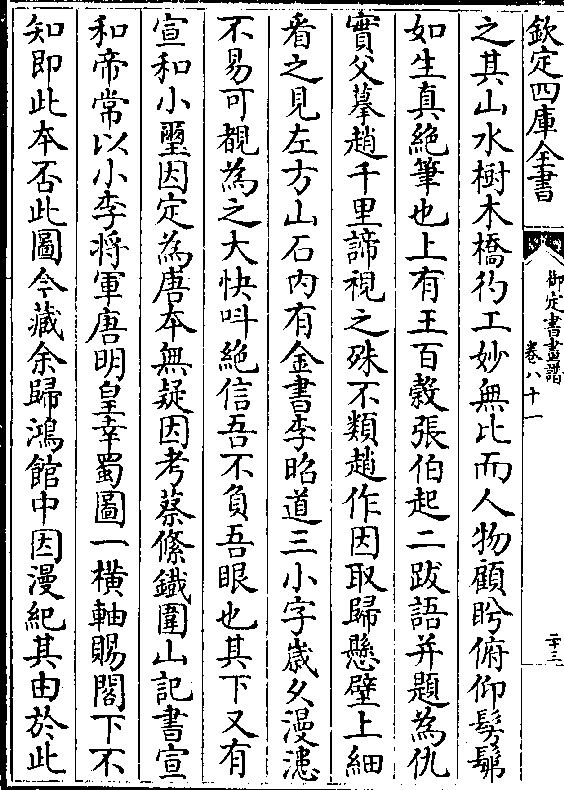 欽定四庫全書
御定書畫譜
卷八十一
二十三
之其山水樹木橋彴工妙無比而人物顧盻俯仰髣髴
如生真絶筆也上有王百穀張伯起二跋語并題為仇
實父摹趙千里諦視之殊不類趙作因取歸懸壁上細
看之見左方山石内有金書李昭道三小字歲久漫漶
不易可覩為之大快呌絶信吾不負吾眼也其下又有
宣和小璽因定為唐本無疑因考蔡絛鐵圍山記書宣
和帝常以小李將軍唐明皇幸蜀圖一横軸賜閣下不
知即此本否此圖今藏余歸鴻館中因漫紀其由於此